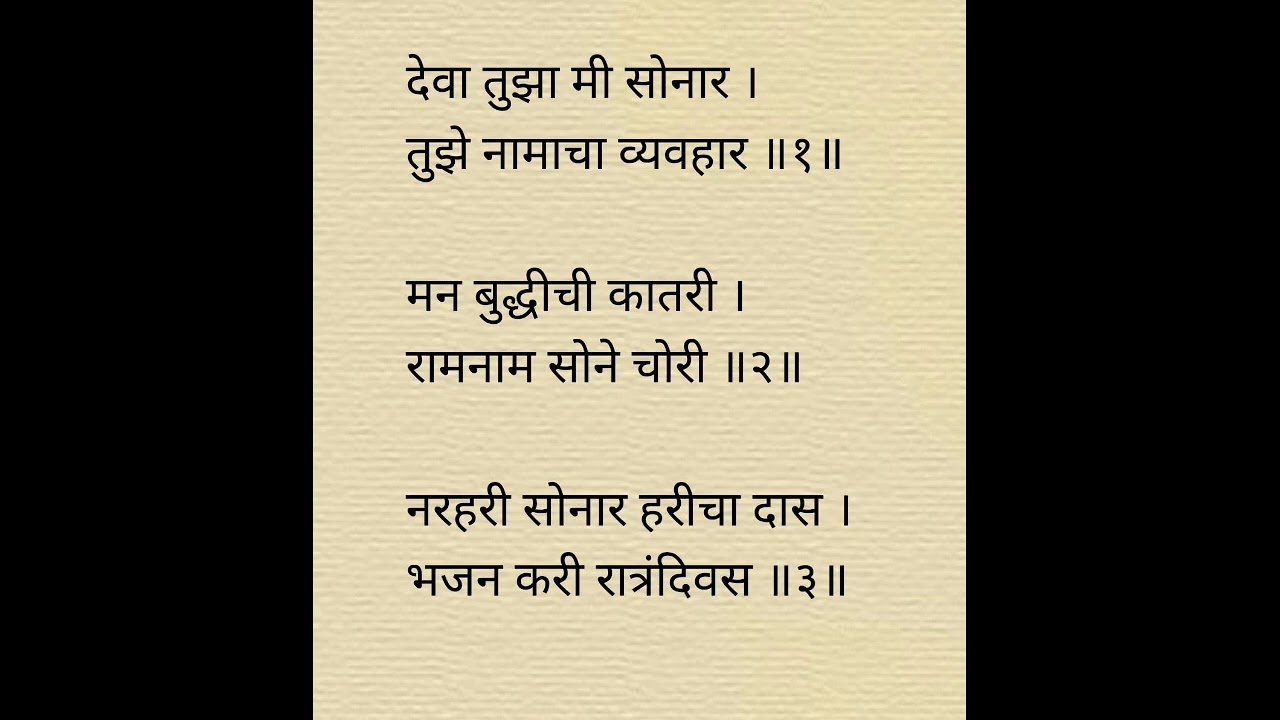 देवा तुझा मी सोनार ।
तुझे नामाचा व्यवहार ॥१॥
मन बुद्धीची कातरी ।
रामनाम सोने चोरी ॥२॥
नरहरी सोनार हरीचा दास ।
भजन करी रात्रंदिवस ॥३॥